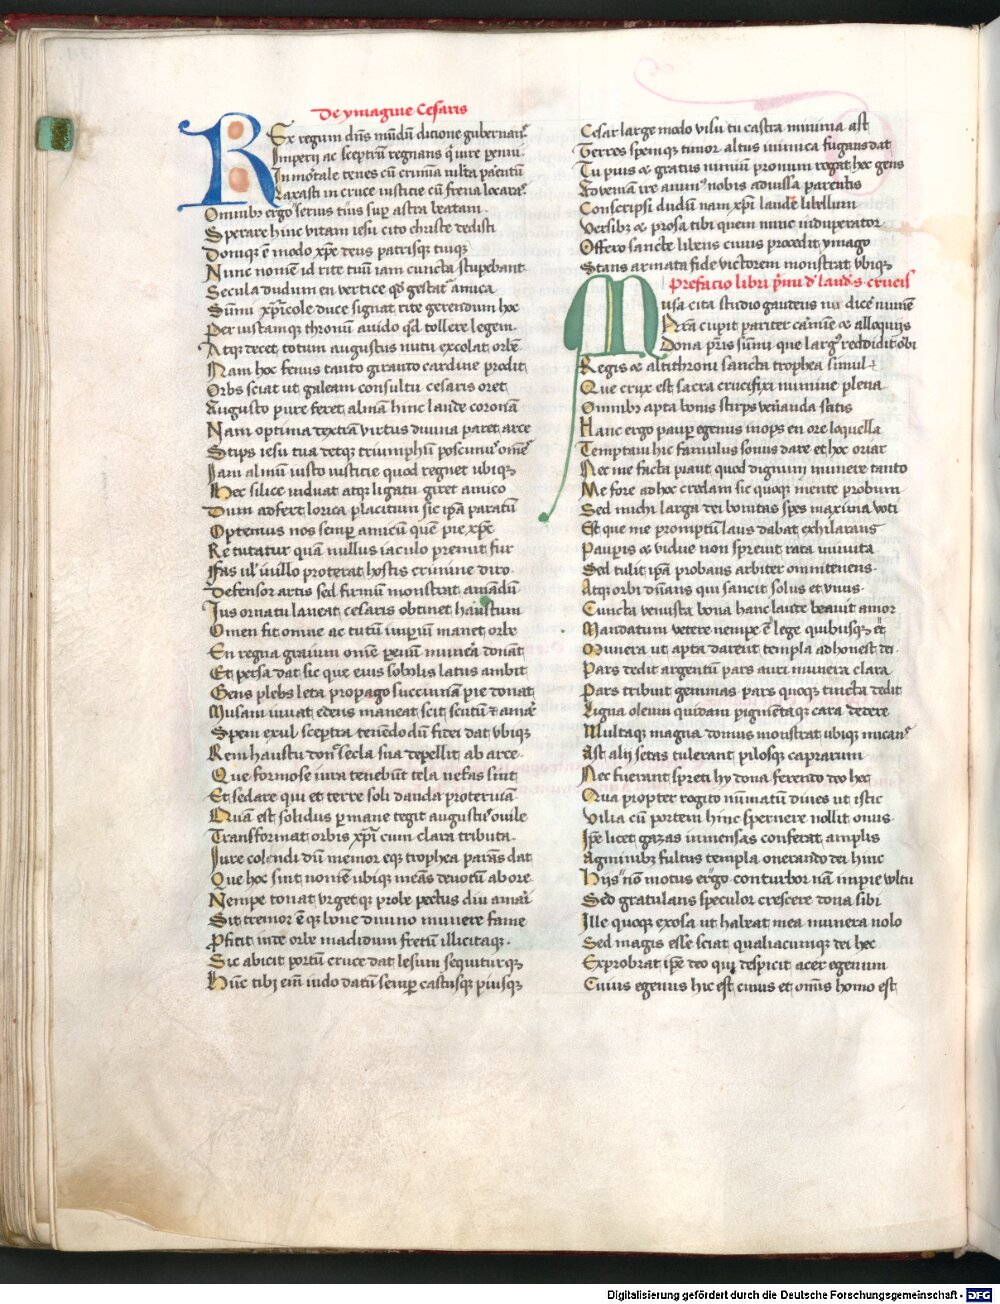 De ymagine Cesaris
Rex regum dn̄s mūdū dicione gubernans
Imperij ac sceptrū regnans q̄ iure perm̄i
Inmortale tenes cū crimina multa parentū
Laxasti in cruce iusticie cū frena locaras
Omnibꝫ ergo seruis tuus sup astra beatam
Sperare hinc vitam iesu cito christe dedisti
Donique ē modo xp̄e deus patrisqꝫ tuiqꝫ
Nunc nomē id rite tuū iam cuncta stupebant
Secula dudum en vertice qd̄ gestat amica
Sūmi xp̄icole duce signat rite gerendum hoc
Per iustamqꝫ thronū auido qd̄ tollere legem
Atqꝫ decet totum augustus nutu excolat orbē
Nam hoc fenus tanto giranto cardine prodit
Orbs sciat ut galeam consultu cesaris oret
Augusto pure feret almā hinc laude coronā
Nam optima dextrā virtus diuina paret arce
Stips iesu tua detqꝫ triumphū poscimus omēs
Iam almū iusto iusticie quod regnet ubiqꝫ
Hec silice induat atqꝫ ligatu giret amico
Dum adfert lorica placitum sic ip̄a paratū
Optemus nos semp amicū quē pie xp̄e
Re tutatur quā nullus iaculo premit fur
Fas ul' nullo proterat hostis crimine diro
Defensor artis sed firmū monstrat amādū
Ius ornatu laneat cesaris obtinet haustum
Omen fit omne ac tutū imp̄iū manet orbe
En regna graium omē penū munera donāt
Et persa dat sic que eius sobolis latus ambit
Gens plebs leta propago succiuna pie donat
Musam iuuat edens maneat scit scutū & amat
Spem exul sceptra tenēdo dū fidei dat vbiqꝫ
Rem haustu don' secla sua depellit ab arce
Que formose iura tenebūt tela nefas sint
Et sedare qui et terre soli danda proteruā
Quā est solidus p mane tegit augusti ouile
Transformat orbis xp̄i cum clara tributa
Iure colendi dū memor eqꝫ trophea parans dat
Que hoc sint nomē ubiqꝫ meās deuotū ab ore
Nempe tonat vrgetqꝫ prole pectus diu amari
Sit tremor ē qꝫ boue diuino munere fame
Pficit inde orbe madidum fretū illicitaqꝫ
Sic abicit portū cruce dat lesum sequiturqꝫ
Hūc tibi em̄ iudo datū semp castusqꝫ piusqꝫ
Cesar large modo visu tu castra minima ast
Terres spemqꝫ timor altus inimica fugans dat
Tu pius & gratus nimiū pronum rogat hec gens
Adveniā ire auim' nobis admissa parentis
Conscripsi dudū nam xp̄i laude libellum
Versibꝫ & prosa tibi quem nunc induperator
Offero sancte libens cuius precedit ymago
Stans armata fide victorem monstrat vbiqꝫ
Prefacio libri p̄mi d' laud. s. crucis
Musa cita studio gaudens nūc dice' numē
Arā cupit pariter carmīe & alloquijs
Dona pr̄is sūmi que larg' reddidit orbi
Regis & altithroni sancta trophea simul
Que crux est sacra crucifixi numine plena
Omnibꝫ apta bonis stirps ven̄anda satis
Hanc ergo paup egenus inops en ore loquella
Temptaui hic famulus sonus dare et hoc oriar
Nec me facta piant quod dignum munere tanto
Me fore ad hoc credam sic quoqꝫ mente probum
Sed michi larga dei bonitas spes maxima voti
Est que me promptū laus dabat exhilarans
Paup̄is & vidue non spreuit rata minuta
Sed tulit ip̄a probans arbiter omnitenens
Atqꝫ orbi dn̄ans qui sancit solus et vnus
Cuncta venusta bona hanc laude beauit amor
Mandatum vetere nempe ē lege quibusqꝫ et
Munera ut apta darent templa ad honest dei
Pars dedit argentū pars auri munera clara
Pars tribuit gemmas pars quoqꝫ cuncta dedit
Ligna oleum quidam pigmētaqꝫ cara dedere
Multaqꝫ magna domus monstrat ubiqꝫ micans
Ast alij setas tulerant pilosqꝫ caprarum
Nec fuerant spreti hy dona ferendo deo hec
Qua propter rogito nūmatū diues ut istic
Vilia cū portem hinc spernere nollit onus
Ip̄e licet gazas inmensas conferat amplis
Agminibꝫ fultus templa onerando dei hinc
Hijs nō motus ergo conturbor nā impie vltu
Sed gratulans speculor crescere dona sibi
Ille quoqꝫ exosa ut habeat mea munera nolo
Sed magis esse sciat qualiacumqꝫ dei hec
Exprobrat ip̄e deo qui despicit acer egenum
Cuius egenus hic est cuius et omīs homo est
Digitalisierung gefördert durch die Deutsche Forschungsgemeinschaft - DFG